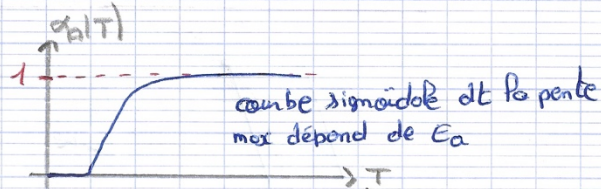 α_A(T)
1
courbe sigmoïdale dt la pente
max dépend de Ea
T